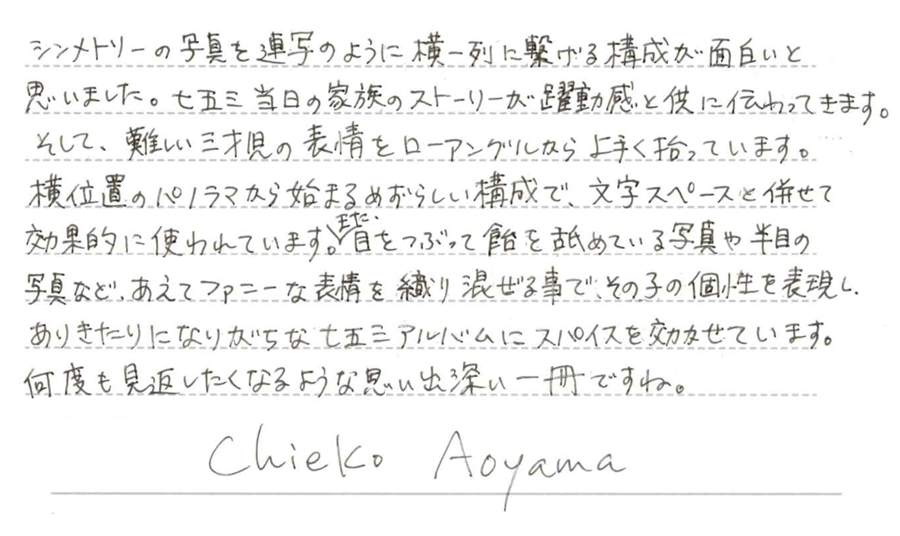 シンメトリーの写真を連写のように横一列に繋げる構成が面白いと
思いました。七五三当日の家族のストーリーが躍動感と供に伝わってきます。
そして、難しい三才児の表情をローアングルから上手く拾っています。
横位置のパノラマから始まるめずらしい構成で、文字スペースと併せて
効果的に使われています。また、目をつぶって飴を舐めている写真や半目の
写真など、あえてファニーな表情を織り混ぜる事で、その子の個性を表現し、
ありきたりになりがちな七五三アルバムにスパイスを効かせています。
何度も見返したくなるような思い出深い一冊ですね。
Chieko Aoyama